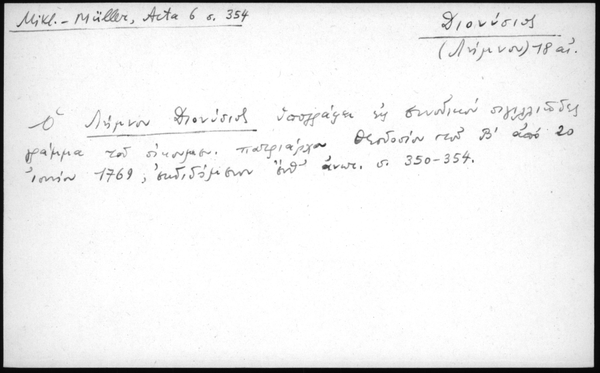 Mikl.- Müller, Acta 6 σ. 354
Διονύσιος
(Λήμνου) 18 αἰ.
Ὁ Λήμνου Διονύσιος ὑπογράφει εἰς συνοδικόν σιγιλλιῶδες
γράμμα τοῦ οἰκουμεν. πατριάρχου Θεοδοσίου τοῦ Β' ἀπό 20
ἰουνίου 1769, ἐκδιδόμενον ἔνθ' ἀνωτ. σ. 350-354.